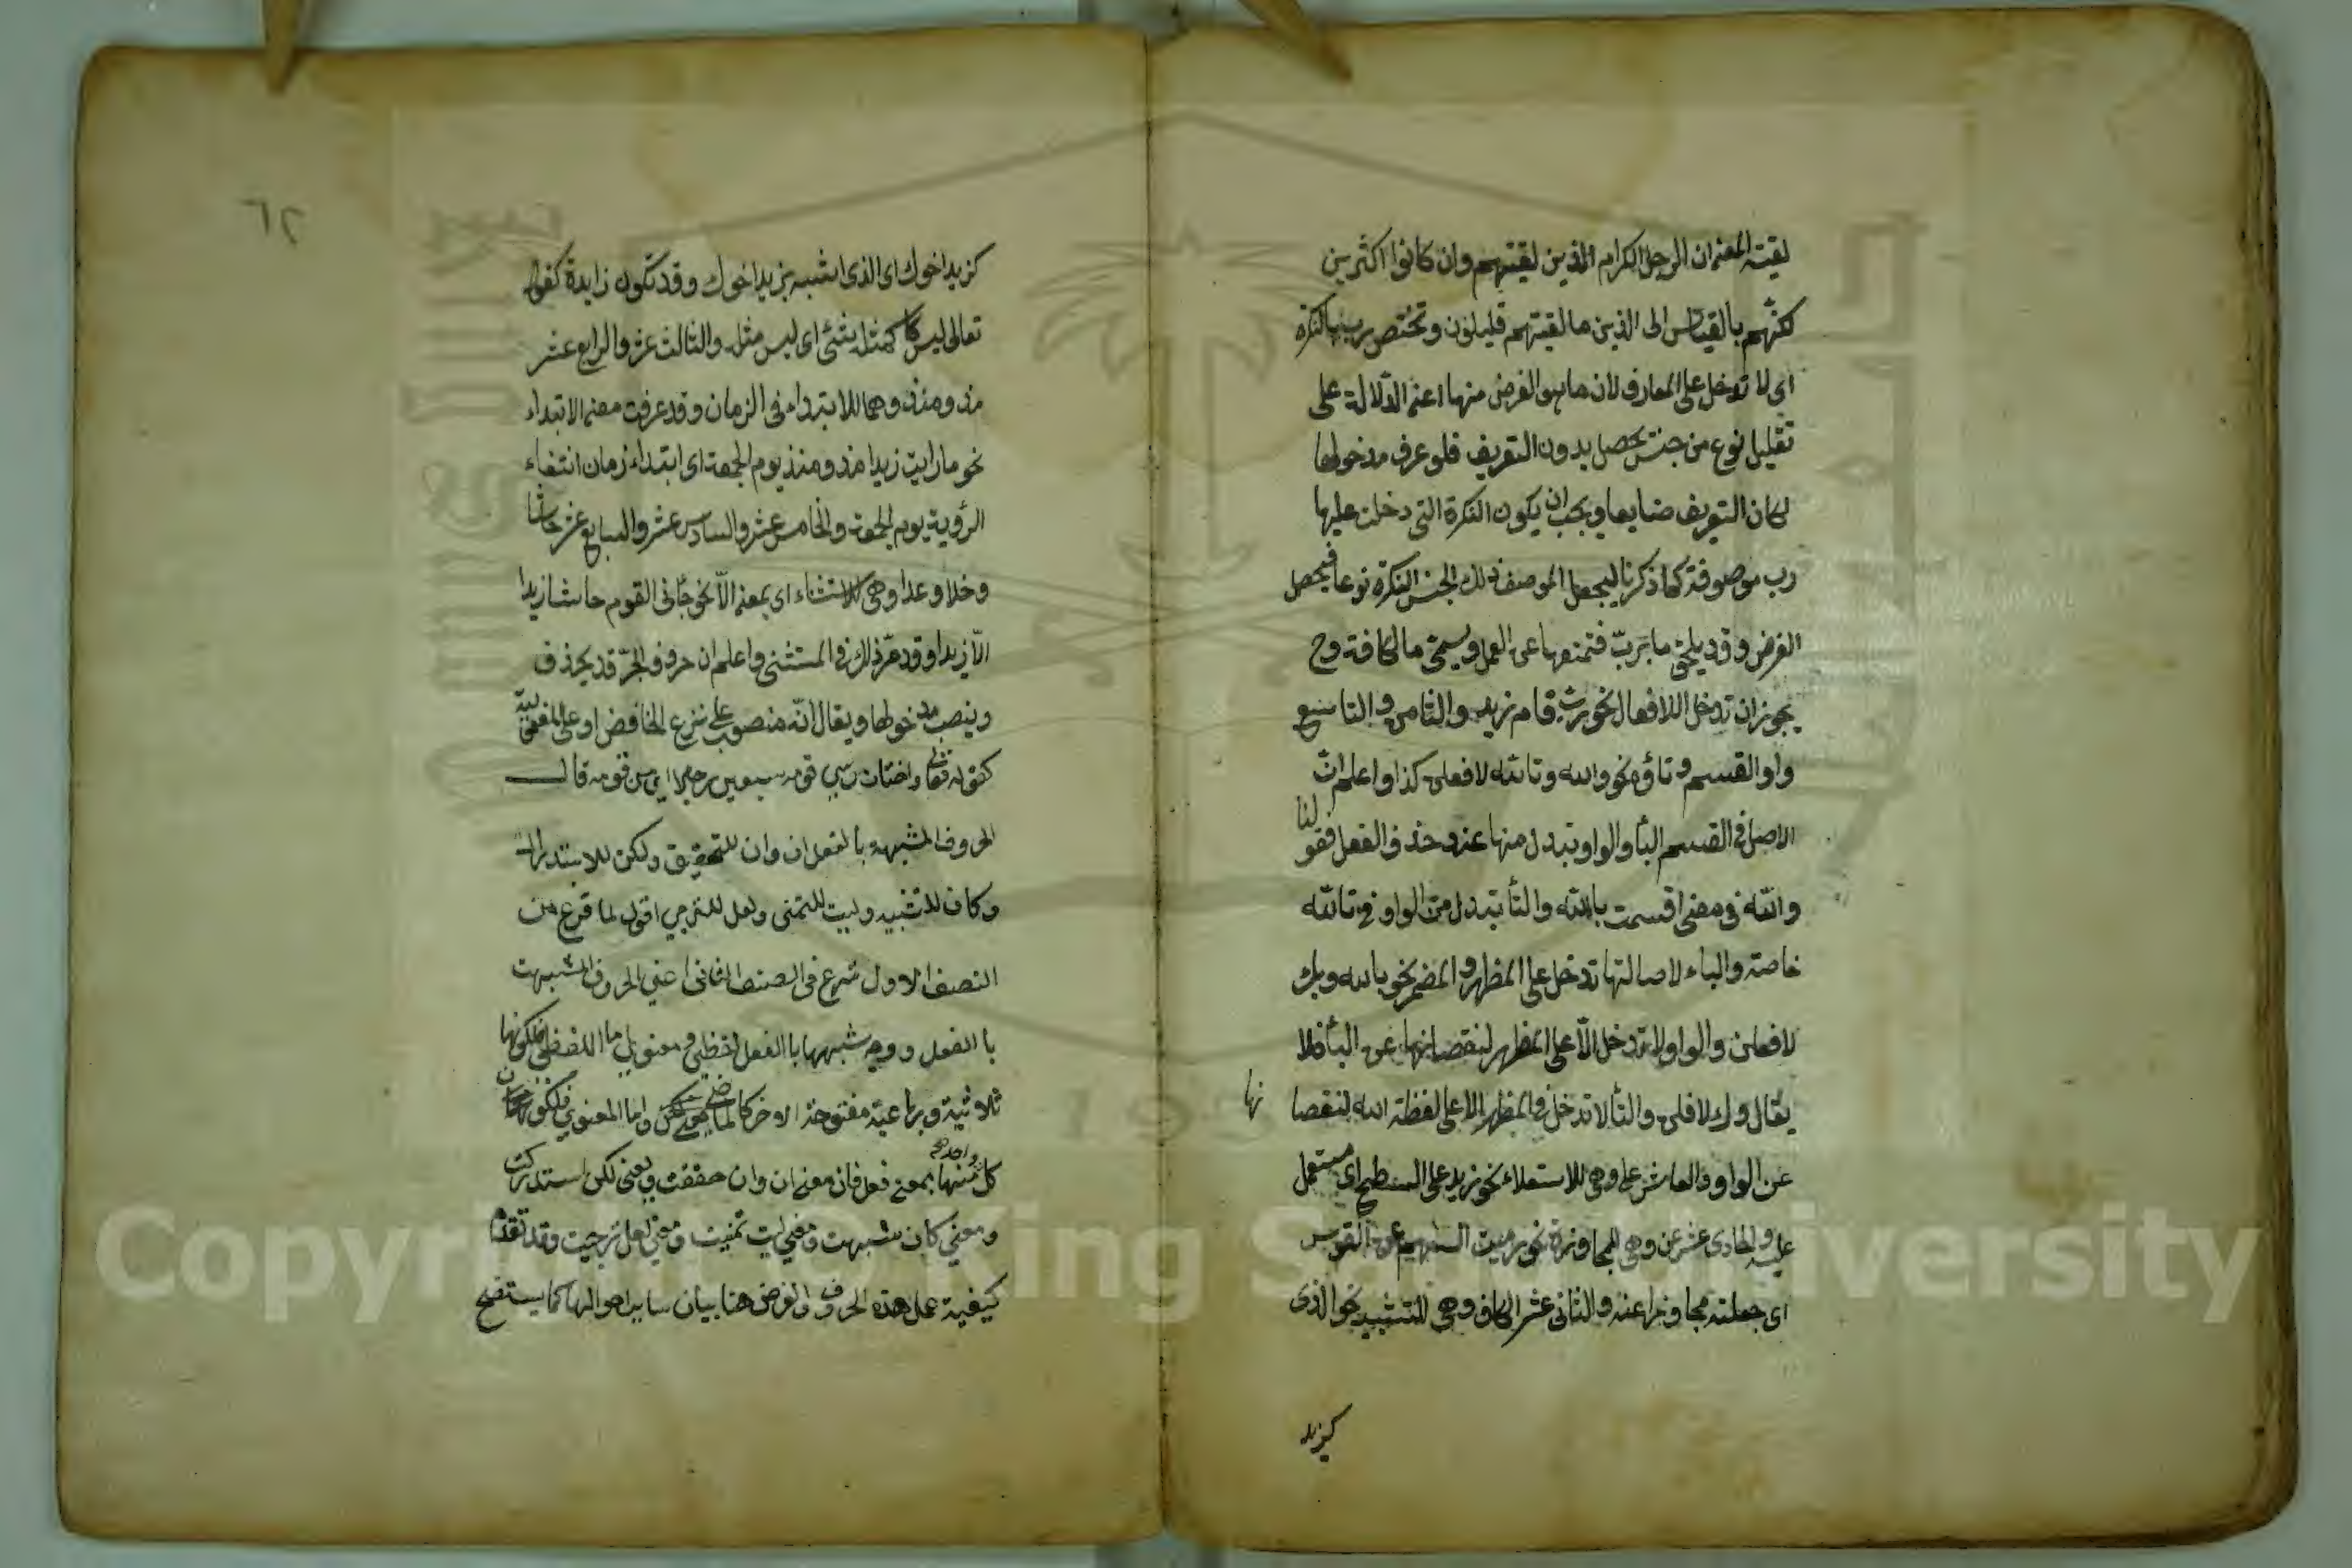 لقيته المعنى ان الرجال الكرام الذين لقيتهم وان كانوا اكثرين
لكنهم بالقياس الى الذين ما لقيتهم قليلون وتختص رب بالنكرة
اى لا تدخل على المعارف لان ما هو الغرض منها اعنى الدلالة على
تقليل نوع من جنس يحصل بدون التعريف فلو عرف مدخولها
لكان التعريف ضايعا ويجب ان يكون النكرة التى دخلت عليها
رب موصوفة كما ذكرنا ليجعل الوصف ذلك الجنس النكرة نوعا فيحصل
الغرض وقد يلحق ما برب فتمنعها عن العمل ويسمى ما الكافة وح
يجوز ان تدخل الافعال نحو ربما قام زيد والثامن والتاسع
واو القسم وتاؤه نحو والله وتالله لافعلن كذا واعلم ان
الاصل فى القسم الباء والواو تبدل منها عند حذف الفعل فقولنا
والله فى معنى اقسمت بالله والتاء تبدل من الواو فى تالله
خاصة والباء لاصالتها تدخل على المظهر والمضمر نحو بالله وبك
لافعلن والواو لا تدخل الا على المظهر لنقصانها عن الباء فلا
يقال وك لافعلن والتاء لا تدخل فى المظهر الا على لفظة الله لنقصانها
عن الواو والعاشر على وهى للاستعلاء نحو زيد على السطح اى مستعل
عليه والحادى عشر عن وهى للمجاوزة نحو رميت السهم عن القوس
اى جعلته مجاوزا عنه والثانى عشر الكاف وهى للتشبيه نحو الذى
كزيد
٦٢
كزيد اخوك اى الذى اشبه بزيد اخوك وقد تكون زايدة كقوله
تعالى ليس كمثله شئ اى ليس مثله والثالث عشر والرابع عشر
مذ ومنذ وهما للابتداء فى الزمان وقد عرفت معنى الابتداء
نحو ما رايت زيدا مذ ومنذ يوم الجمعة اى ابتداء زمان انتفاء
الرؤية يوم الجمعة والخامس عشر والسادس عشر والسابع عشر حاشا
وخلا وعدا وهى للاستثناء اى بمعنى الا نحو جائنى القوم حاشا زيدا
الا زيدا وقد مر ذلك فى المستثنى واعلم ان حروف الجر قد يحذف
وينصب مدخولها ويقال انه منصوب على نزع الخافض او على المفعولية
كقوله تعالى واختار موسى قومه سبعين رجلا اى من قومه قال
الحروف المشبهة بالفعل ان وان للتحقيق ولكن للاستدراك
وكان للتشبيه وليت للتمنى ولعل للترجى اقول لما فرغ من
الصنف الاول شرع فى الصنف الثانى اعنى الحروف المشبهة
بالفعل ووجه شبهها بالفعل لفظى ومعنوى اما اللفظى فلكونها
ثلاثية ورباعية مفتوحة الاخر كالماضى واما المعنوى فلكون
كل واحد منها بمعنى فعل فان معنى ان وان حققت ومعنى لكن استدركت
ومعنى كان شبهت ومعنى ليت تمنيت ومعنى لعل ترجيت وقد تقدم
كيفية عمل هذه الحروف والغرض هنا بيان ساير احوالها كما يستفتح
Copyright © King Saud University